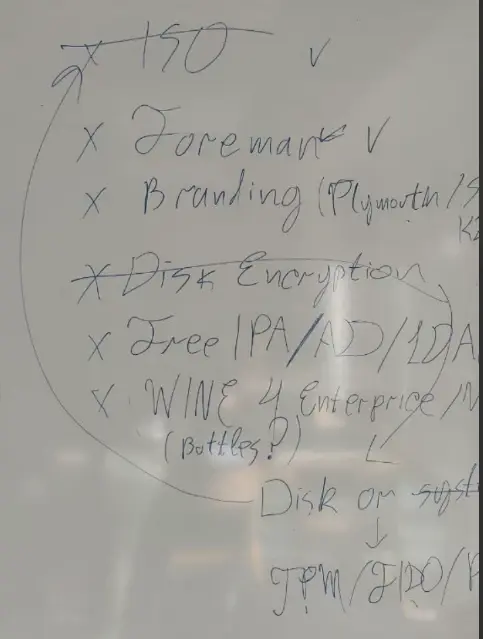 x ISO v
x Foreman v
x Branding (Plymouth/
x Disk Encryption
x Free IPA/AD/
x WINE 4 Enterprice/
(Bottles?)
Disk or
TPM/FIDO/